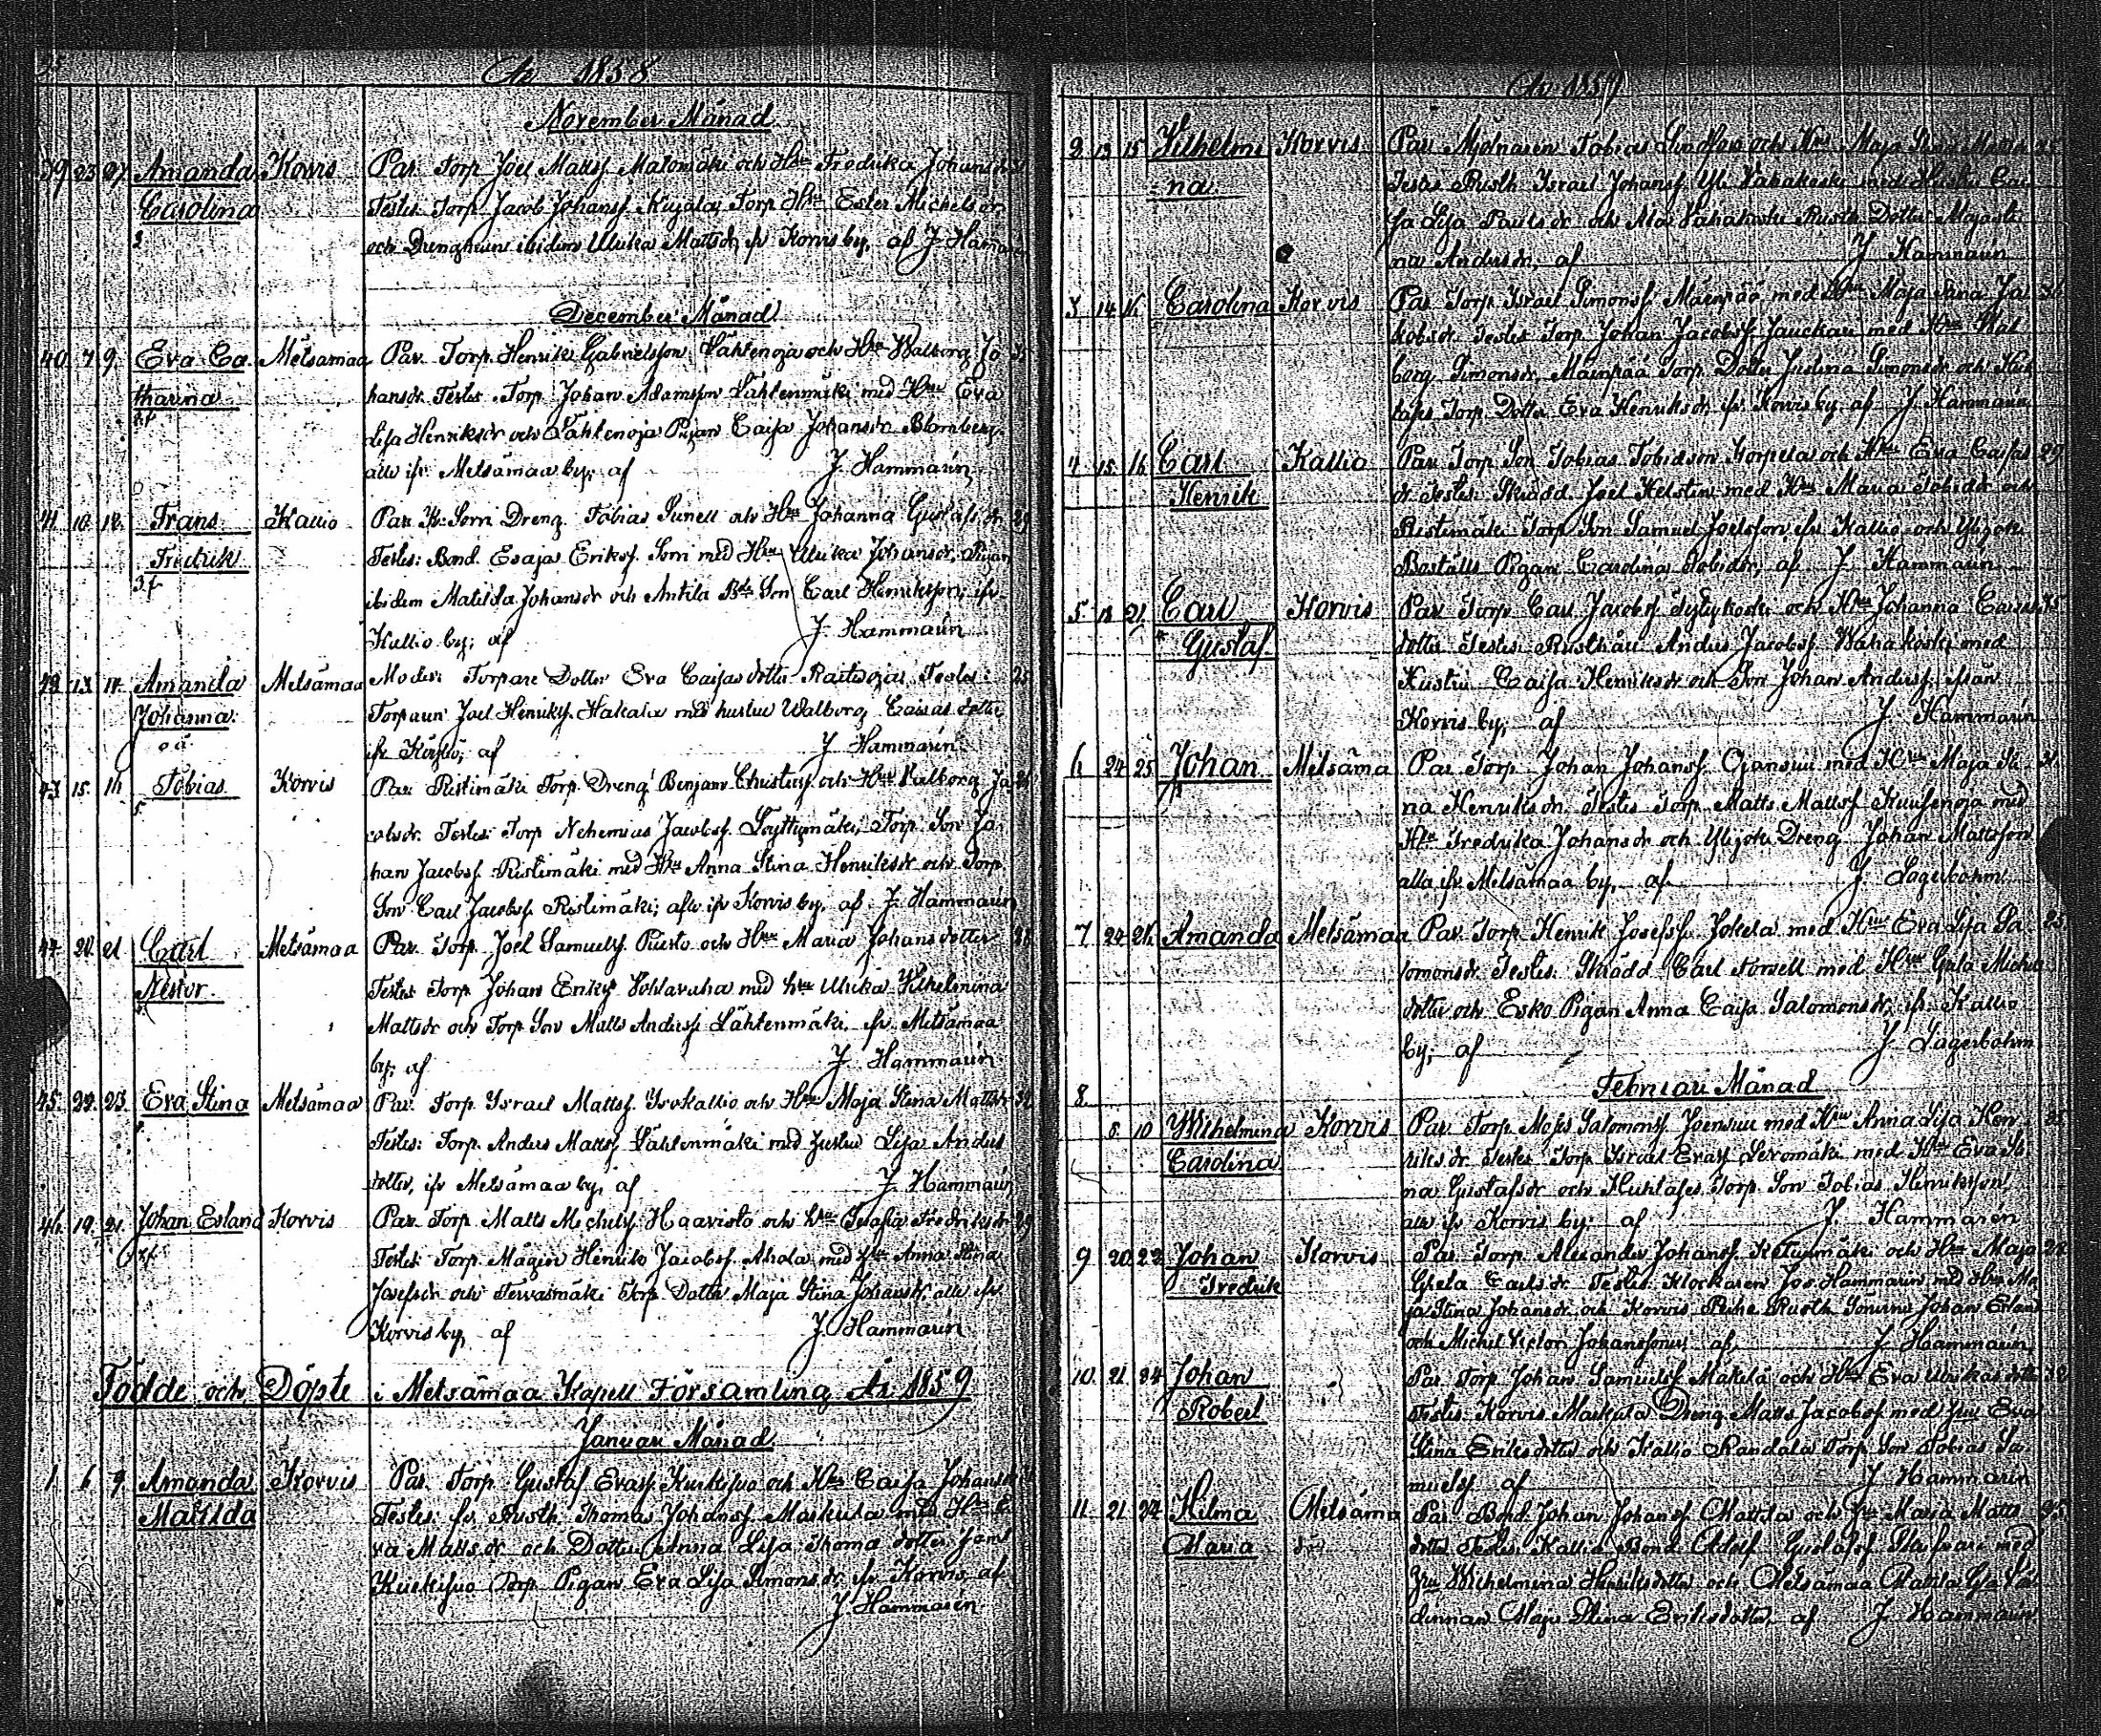 År 1858
November Månad
39 23 27 Amanda Korvis Par. Torp Joel Matts. Matomäki och Hru Fredrika Johansdr
Carolina Testes Torp Jacob Johanss. Kujala, Torp Hru Ester Michelsdr
och Drenghrun ibidem Ulrika Mattsdr fr Korvis by, af J. Hammarén
December Månad
40 7 9 Eva Ca Metsämaa Par. Torp. Henrik Gabrielsson Lähtenoja och Hru Walborg Jo 35
tharina hansdr. Testes. Torp Johan Adamsson Lähtenmäki med Hru Eva
Lisa Henriksdr och Lähtenoja Pigan Caisa Johansdr Blomberg
alla ifr Metsämaa by; af J. Hammarén
41 10 12 Frans Kallio Par. Sorri Dreng Tobias Sunell och Hru Johanna Gustafsdr 29
Fredrik Testes: Bond. Esaja Erikss. Sorri med Hru Ulrika Johansdr, Pigan
ibidem Matilda Johansdr och Antila Bde Son Carl Henriksson, ifr
Kallio by; af J. Hammarén
42 13 14 Amanda Metsämaa Moder: Torpare Dotter Eva Caisas dotter Testes: 25
Johanna Torparen Joel Henrikss. Hakala med hustru Walborg Caisas dotter
o ä ifr af J Hammarén
43 15 16 Tobias Korvis Par. Ristimäki Torp. Dreng Benjam Christerss och Hru Valborg Ja
cobsdr. Testes: Torp Nehemias Jacobss. Torp. Son Jo
han Jacobss. Ristimäki med Hru Anna Stina Henriksdr och Torp
Son Carl Jacobss. Ristimäki; alla ifr Korvis by, af J. Hammarén
44 20 21 Carl Metsämaa Par. Torp. Joel Samuelss. Puisto och Hru Maria Johans dotter 28
Nestor Testes Torp Johan Erikss med hru Ulrika Wilhelmina
Mattsdr och Torp Son Matts Anderss Lähtenmäki, ifr Metsämaa
by; af J. Hammarén
45 22 23 Eva Stina Metsämaa Par. Torp. Israel Mattss. Isokallio och Hru Maja Stina Mattsdr 32
Testes: Torp. Anders Mattss. Lähtenmäki med hustru Lisa Anders
dotter, ifr Metsämaa by, af J. Hammarén
46 19 21 Johan Erland Korvis Par. Torp. Matts Michelss. Haavisto och hru Serafia Fredriksdr 29
Testes Torp. Mågen Henrik Jacobss. Ahola med hru Anna Stina
Josefsdr och Tervasmäki Torp. Dotter Maja Stina Johansdr, alla ifr
Korvis by, af J. Hammarén
Födde och Döpte i Metsämaa Kapell Församling År 1859
Januari Månad
1 6 9 Amanda Korvis Par. Torp Gustaf Erass. Kuckisuo och Hru Caisa Johansdr
Matilda Testes: fr. Rusth. Thomas Johanss. Markula med Hru E
va Mattsdr och Dotter Anna Lisa Thoma dotter samt
Kuckisuo Torp. Pigan Eva Lisa Simonsdr, ifr Korvis, af
J. Hammarén
År 1859
2 13 15 Wilhelmi Korvis Par. Mjölnaren Tobias Lindfors och Hru Maja Stina Matts
na Testes Rusth Israel Johanss. Yli Vahakoski med Hustru Cai
sa Lisa Paulsdr och Ala Vahakoski Rusth. Dotter Maja Sti
na Andersdr, af J Hammarén
3 14 16 Carolina Korvis Par. Torp. Israel Simonss. Mäenpää med Hru Maja Stina Ja 36
kobsdr. Testes Torp Johan Jacobss. Jauckari med Hru Wal
borg Simonsdr, Mäenpää Torp. Dotter Justina Simonsdr och
Torp. Dotter Eva Henriksdr, ifr Korvis by, af J. Hammarén
4 15 16 Carl Kallio Par. Torp Son Tobias Tobiasson Korpela och Hru Eva Caisas 29
Henrik dr Testes: Skrädd. Joel Helstén med Hru Maria Tobidr och
Ristimäki Torp Son Samuel Joelsson ifr Kallio och Ylijoki
Boställs Pigan Carolina Tobidr, af J. Hammarén
5 18 21 Carl Korvis Par. Torp Carl Jacobss. och Hru Johanna Carls 35
Gustaf dotter Testes: Rusthåll. Anders Jacobss. Wahakoski med
Hustru Caisa Henriksdr och Son Johan Anderss. ifrån
Korvis by; af J. Hammarén
6 24 25 Johan Metsäma Par. Torp. Johan Johanss. Ojansuu med Hru Maja Sti 31
na Henriksdr. Testes Torp. Matts Mattss Kuusenoja med
Hru Fredrika Johansdr och Ylijoki Dreng Johan Mattsson
alla ifr Metsämaa by, af J. Lagerbohm
7 24 26 Amanda Metsämaa Par. Torp Henrik Josefss. Jokela med Hru Eva Lisa Sa 25
lomonsdr. Testes: Skrädd. Carl Forsell med Hru Greta Michels
dotter och Esko Pigan Anna Caisa Salomonsdr, ifr Kallio
by; af J. Lagerbohm
Februari Månad
8 8 10 Wilhelmina Korvis Par. Torp. Moses Salomonss. Joensuu med Hru Anna Lisa Hen
Carolina riksdr Testes Torp. Israel Erass Levomäki med Hru Eva Sti
na Gustafsdr och Torp. Son Tobias Henriksson,
alla ifr Korvis by; af J. Hammarén
9 20 22 Johan Korvis Par. Torp. Alexander Johanss. och Hru Maja 28
Fredrik Greta Carlsdr. Testes. Klockaren Jos. Hammarén med Hru Ma
ja Stina Johansdr och Korvis Rusth. Sönerne Johan Erland
och Michel Victor Johanssöner, af J. Hammarén
10 21 24 Johan Par. Torp. Johan Samuelss Mäkilä och Hru Eva Ulrikas dotter 32
Robert Testes: Korvis Markula Dreng Matts Jacobss. med hru Eva
Stina Eriks dotter och Kallio Randala Torp Son Tobias Sa
muelss af J. Hammarén
11 21 24 Hilma Metsäma Par. Bond. Johan Johanss. Mattila och hru Maria Matts 35
Maria dotter Testes: Kallio Bond. Adolf Gustafss. med
hru Wilhelmina Henriksdotter och Metsämaa Mattila
Maja Stina Eriksdotter, af J. Hammarén